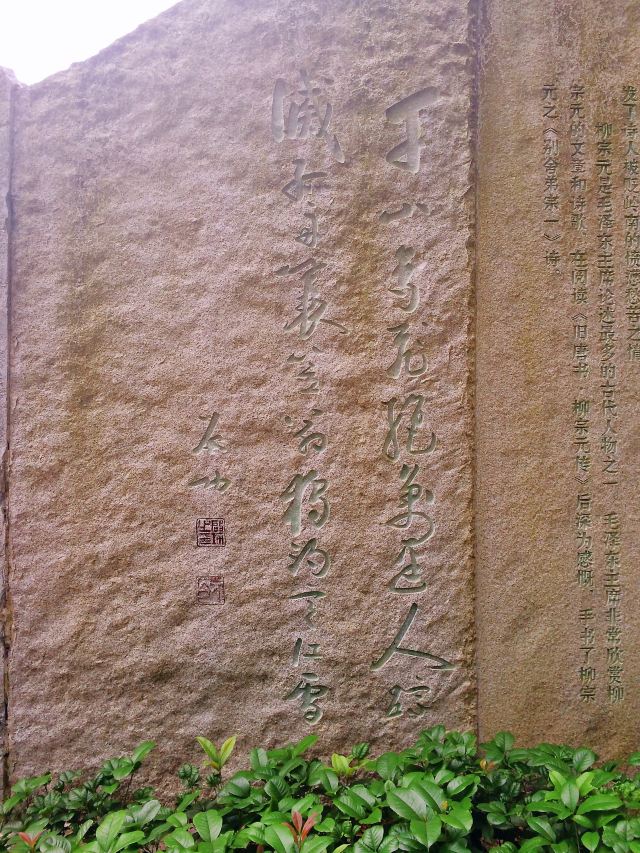 发了诗人被贬岭南的愤懑愁苦之情
柳宗元是毛泽东主席论述最多的古代人物之一 毛泽东主席非常欣赏柳
宗元的文章和诗歌，在阅读《旧唐书 柳宗元传》后深为感慨，手书了柳宗
元之《别舍弟宗一》诗。
千山鳥飛絕萬逕人踪
滅孤舟蓑笠翁獨釣寒江雪
启功